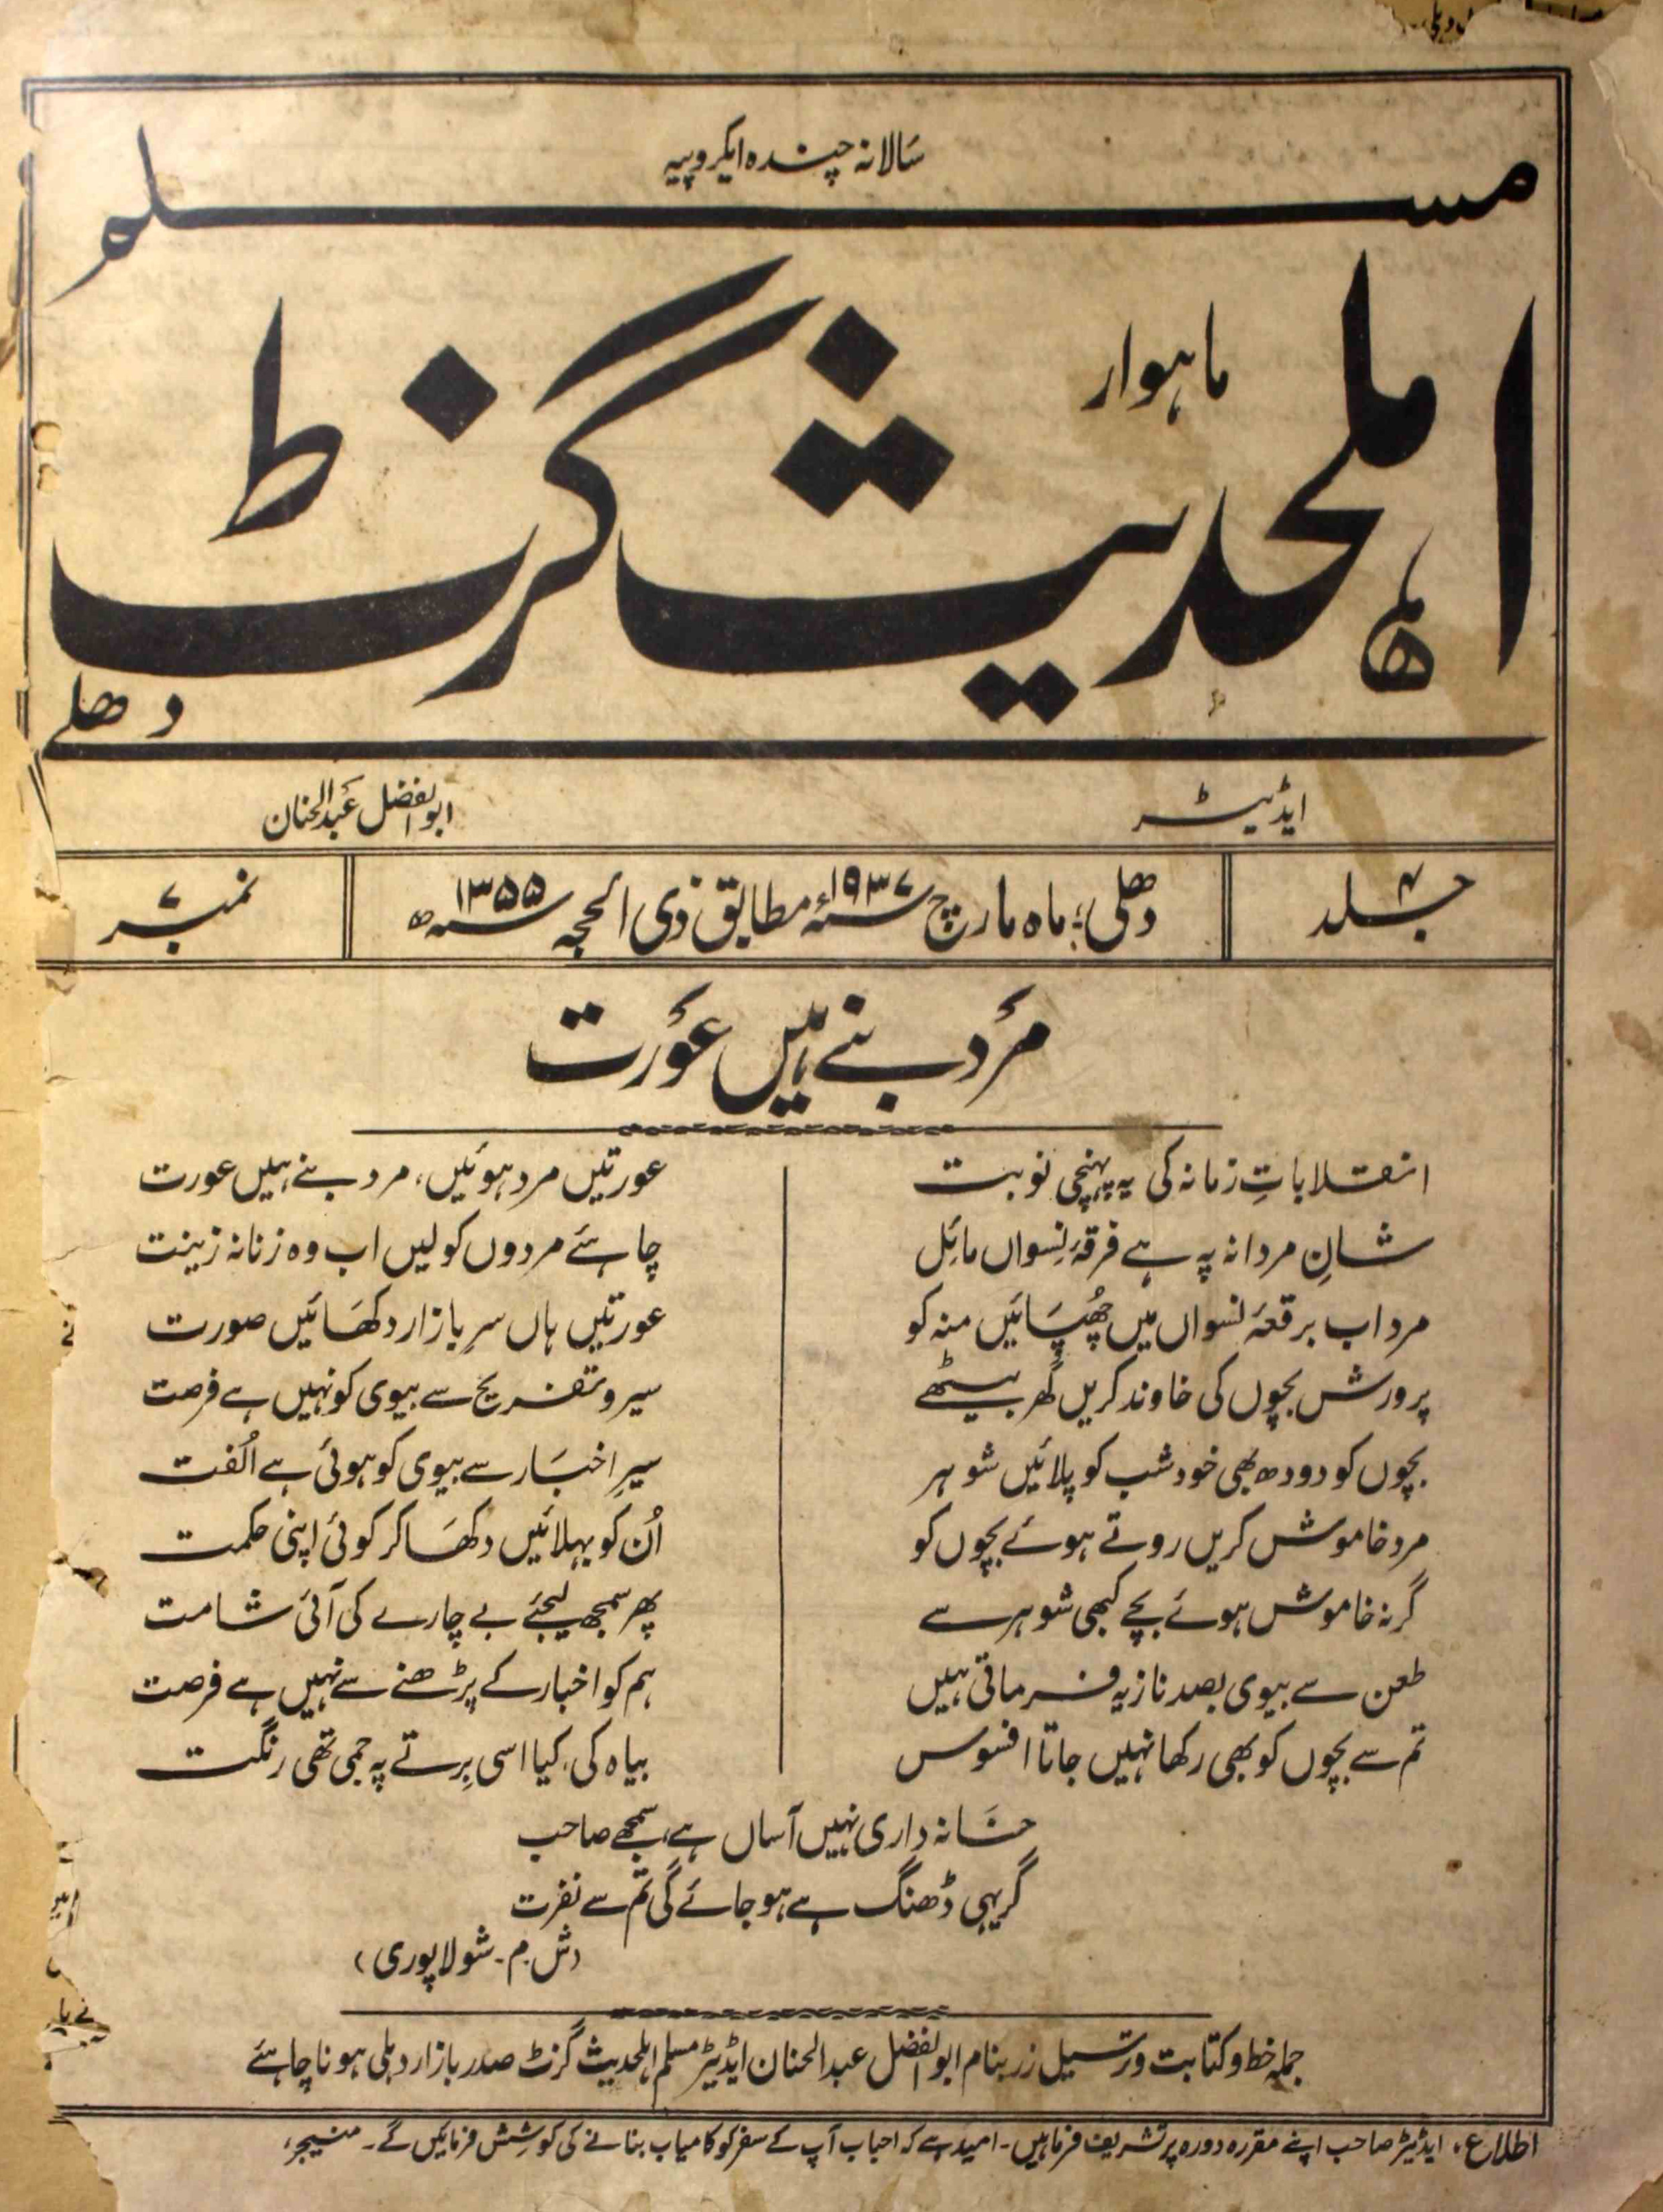 سالانہ چندہ ایکروپیہ
مسلم
ماہوار
اہلحدیث گزٹ
دھلی
ایڈیٹر
ابوالفضل عبدالحنان
جلد ۴
دھلی؛ ماہ مارچ سنہ ۱۹۳۷ء مطابق ذی الحجہ سنہ ۱۳۵۵ھ
نمبر ۷
مرد بنے ہیں عورت
انقلاباتِ زمانہ کی یہ پہنچی نوبت
عورتیں مرد ہوئیں، مرد بنے ہیں عورت
شانِ مردانہ پہ ہے فرقۂ نسواں مائل
چاہئے مردوں کو لیں اب وہ زنانہ زینت
مرد اب برقعۂ نسواں میں چھُپائیں منہ کو
عورتیں ہاں سرِ بازار دکھائیں صورت
پرورش بچوں کی خاوند کریں گھر بیٹھے
سیر و تفریح سے بیوی کو نہیں ہے فرصت
بچوں کو دودھ بھی خود شب کو پلائیں شوہر
سیرِ اخبار سے بیوی کو ہوئی ہے اُلفت
مرد خاموش کریں روتے ہوئے بچوں کو
اُن کو بہلائیں دکھا کر کوئی اپنی حکمت
گر نہ خاموش ہوئے بچے کبھی شوہر سے
پھر سمجھ لیجئے بے چارے کی آئی شامت
طعن سے بیوی بصد ناز یہ فرماتی ہیں
ہم کو اخبار کے پڑھنے سے نہیں ہے فرصت
تم سے بچوں کو بھی رکھا نہیں جاتا افسوس
بیاہ کی، کیا اسی بِرتے پہ جمی تھی رنگت
خانہ داری نہیں آساں ہے، سمجھے صاحب
گر یہی ڈھنگ ہے ہو جائے گی تم سے نفرت
(ش۔ م۔ شولاپوری)
جملہ خط و کتابت و ترسیل زر بنام ابوالفضل عبدالحنان ایڈیٹر مسلم اہلحدیث گزٹ صدر بازار دہلی ہونا چاہئے
اطلاع، ایڈیٹر صاحب اپنے مقررہ دورہ پر تشریف فرما ہیں۔ امید ہے کہ احباب آپ کے سفر کو کامیاب بنانے کی کوشش فرمائیں گے۔ منیجر،